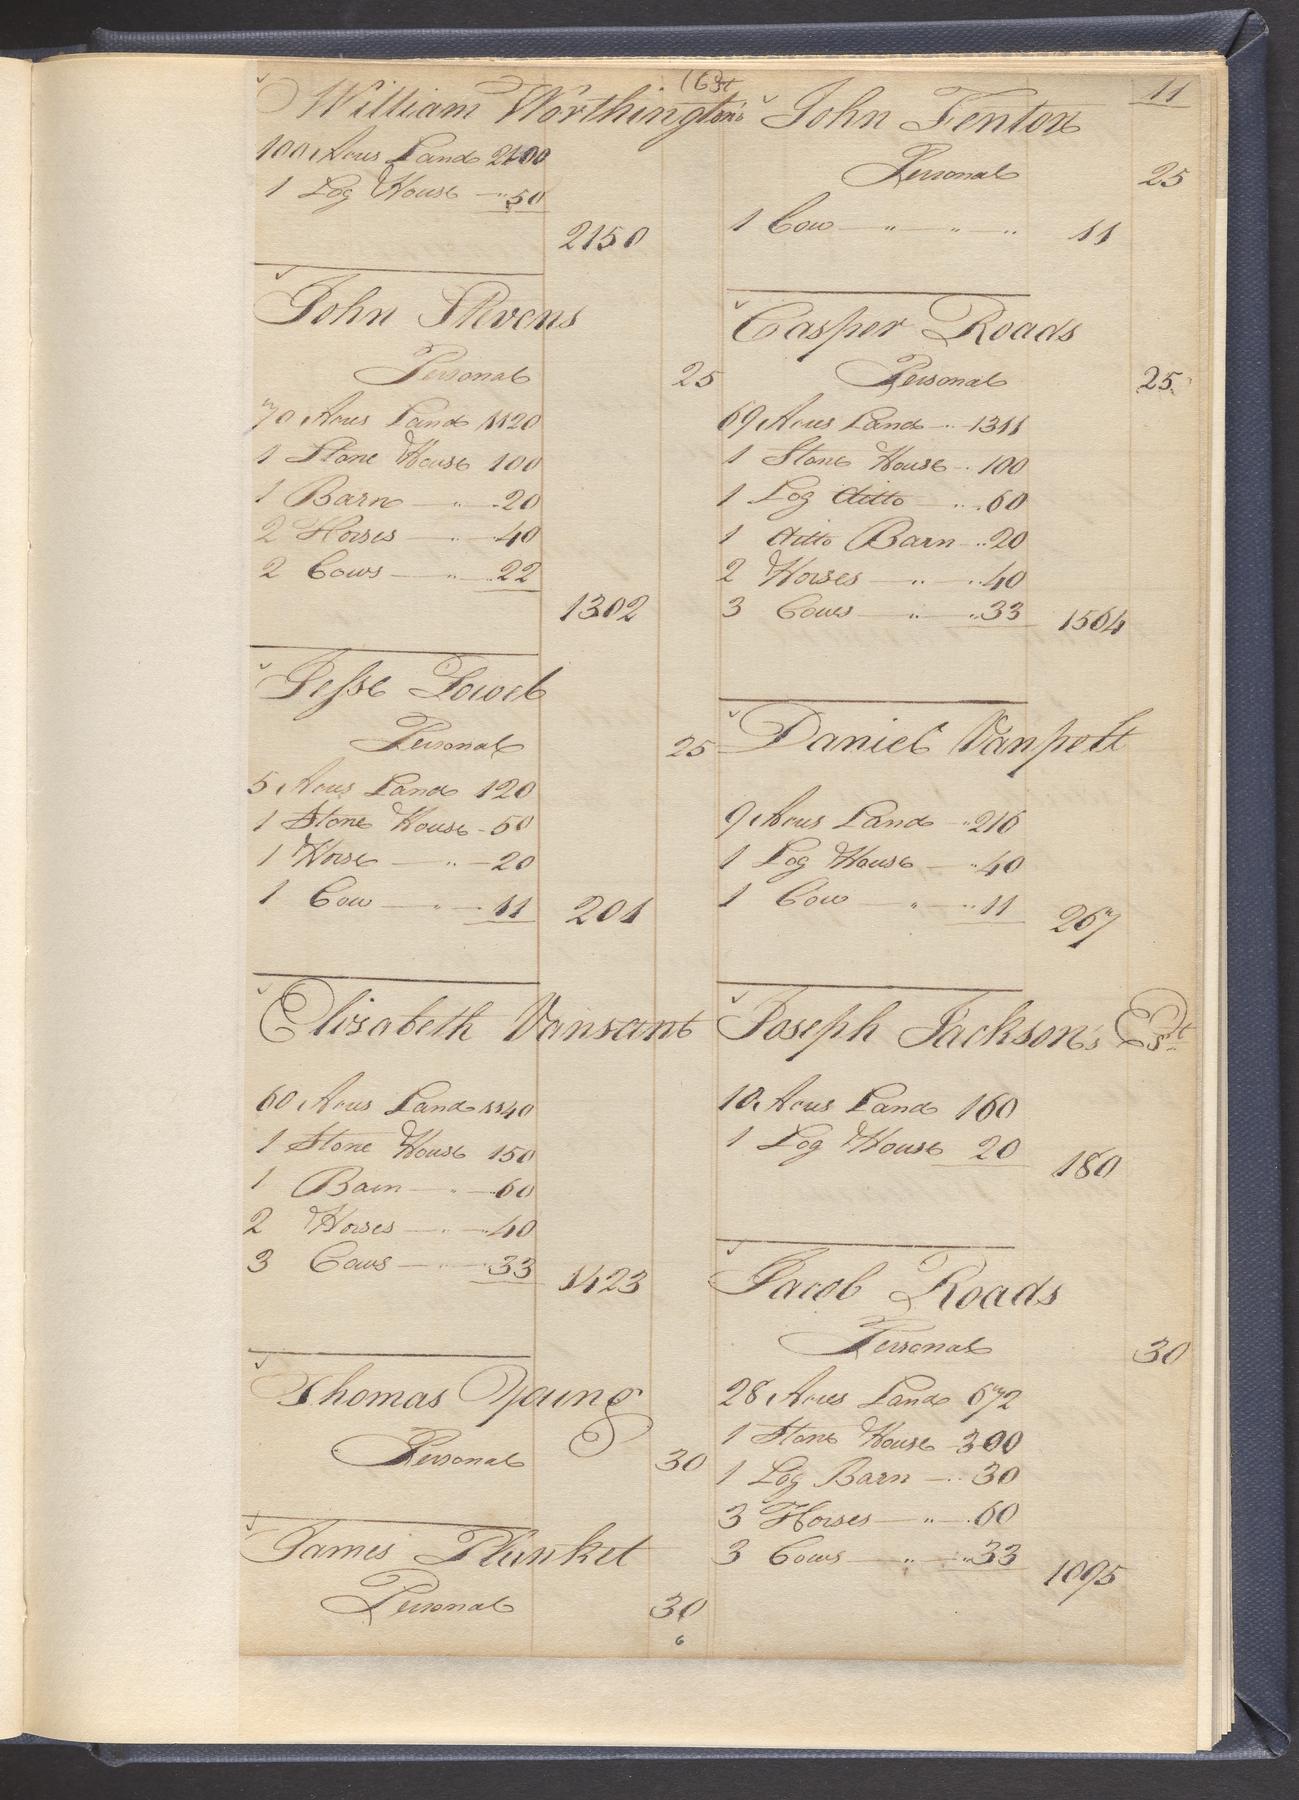 William Worthington's Est
100 Acres Land 2100
1 Log House 50
2150
John Stevens
Personal 25
70 Acres Land 1120
1 Stone House 100
1 Barn 20
2 Horses 40
2 Cows 22
1302
Jesse Lowel
Personal 25
5 Acres Land 120
1 Stone House 50
1 Horse 20
1 Cow 11 201
Elizabeth Vansant
60 Acres Land 1140
1 Stone House 150
1 Barn 60
2 Horses 40
3 Cows 33 1423
Thomas Young
Personal 30
James Plunket
Personal 30
6
11
John Fenton
Personal 25
1 Cow " " " 11
Casper Roads
Personal 25
69 Acres Land 1311
1 Stone House 100
1 Log ditto 60
1 ditto Barn 20
2 Horses 40
3 Cows 33 1564
Daniel Vanpelt
9 Acres Land 216
1 Log House 40
1 Cow 11 267
Joseph Jackson's Est
10 Acres Land 160
1 Log House 20 180
Jacob Roads
Personal 30
28 Acres Land 672
1 Stone House 300
1 Log Barn 30
3 Horses 60
3 Cows 33 1095